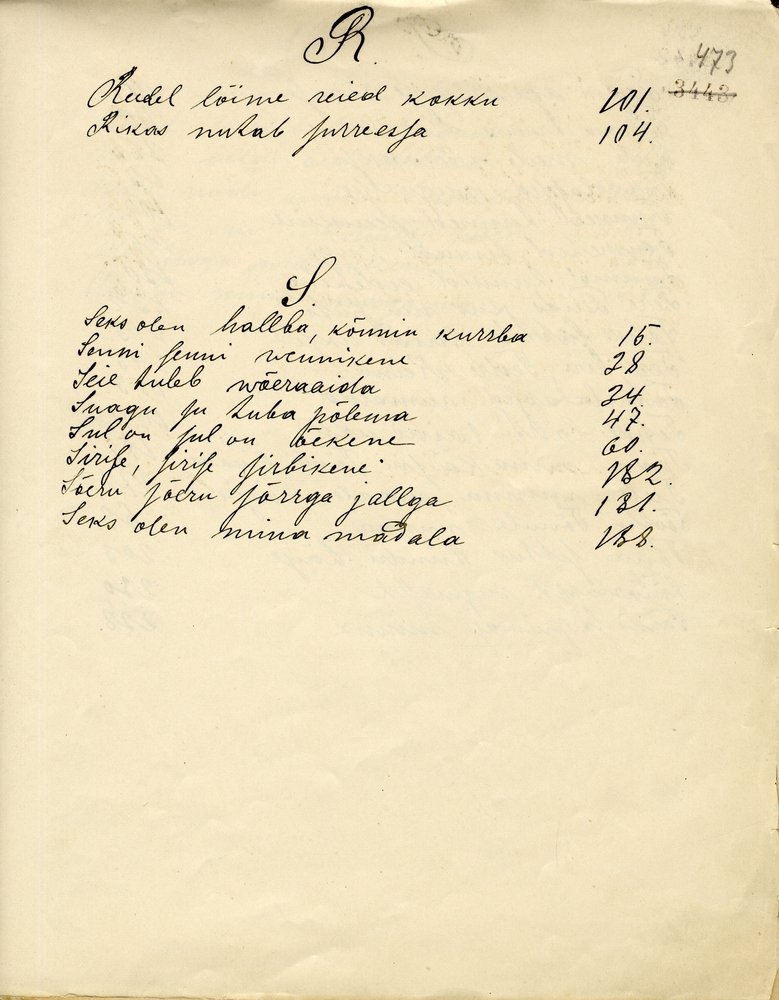 R.
473
3443
Reedel lõime reied kokku 101.
Rikas nutab surreessa 104.
S.
Seks olen hallba, kõnnin kurrba 15.
Senni senni wennikene 28
Seie tuleb wõeraaida 24
Suagu su tuba põlema 47.
Sul on sul on õekene 60.
Sirise, sirise sirbikene 132.
Sõeru sõeru sõrrga jallga 131.
Seks olen mina madala 138.